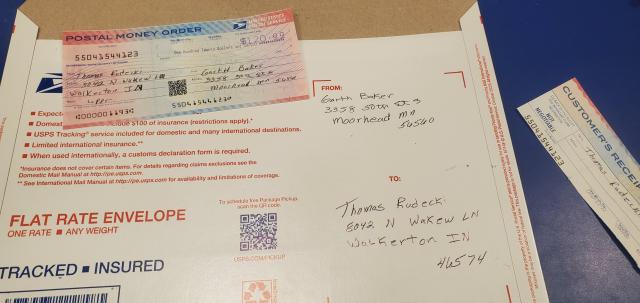 POSTAL MONEY ORDER
UNITED STATES
POSTAL SERVICE
55041544123
$120.99
Thomas Rudecki
5042 N Wakew LN
Walkerton IN
Garth Baker
3358 50th St S
Moorhead MN
55041544123
FROM:
Garth Baker
3358 50th St S
Moorhead MN
56560
$100 of insurance (restrictions apply).*
■ USPS Tracking® service included for domestic and many international destinations.
■ Limited international insurance.**
■ When used internationally, a customs declaration form is required.
*Insurance does not cover certain items. For details regarding claims exclusions see the
Domestic Mail Manual at http://pe.usps.com.
** See International Mail Manual at http://pe.usps.com for availability and limitations of coverage.
TO:
Thomas Rudecki
5042 N Wakew LN
Walkerton IN
46574
To schedule free Package Pickup,
scan the QR code.
USPS.COM/PICKUP
FLAT RATE ENVELOPE
ONE RATE ■ ANY WEIGHT
TRACKED ■ INSURED
CUSTOMER'S RECEI
NOT
NEGOTIABLE
55041544123
Thomas Rudecki